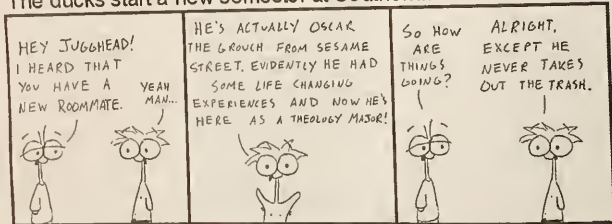 The ducks start a new semester at
HEY JUGGHEAD!
I HEARD THAT
YOU HAVE A
NEW ROOMMATE.
YEAH
MAN...
HE'S ACTUALLY OSCAR
THE GROUCH FROM SESAME
STREET. EVIDENTLY HE HAD
SOME LIFE CHANGING
EXPERIENCES AND NOW HE'S
HERE AS A THEOLOGY MAJOR!
SO HOW
ARE
THINGS
GOING?
ALRIGHT,
EXCEPT HE
NEVER TAKES
OUT THE TRASH.